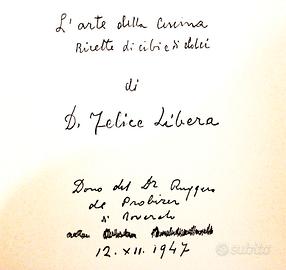 L'arte della Cucina
Ricette di cibi e di dolci
di
D. Felice Libera
Dono del Dr Ruggero
de Probizer
di Rovereto
12. XII. 1947
subito